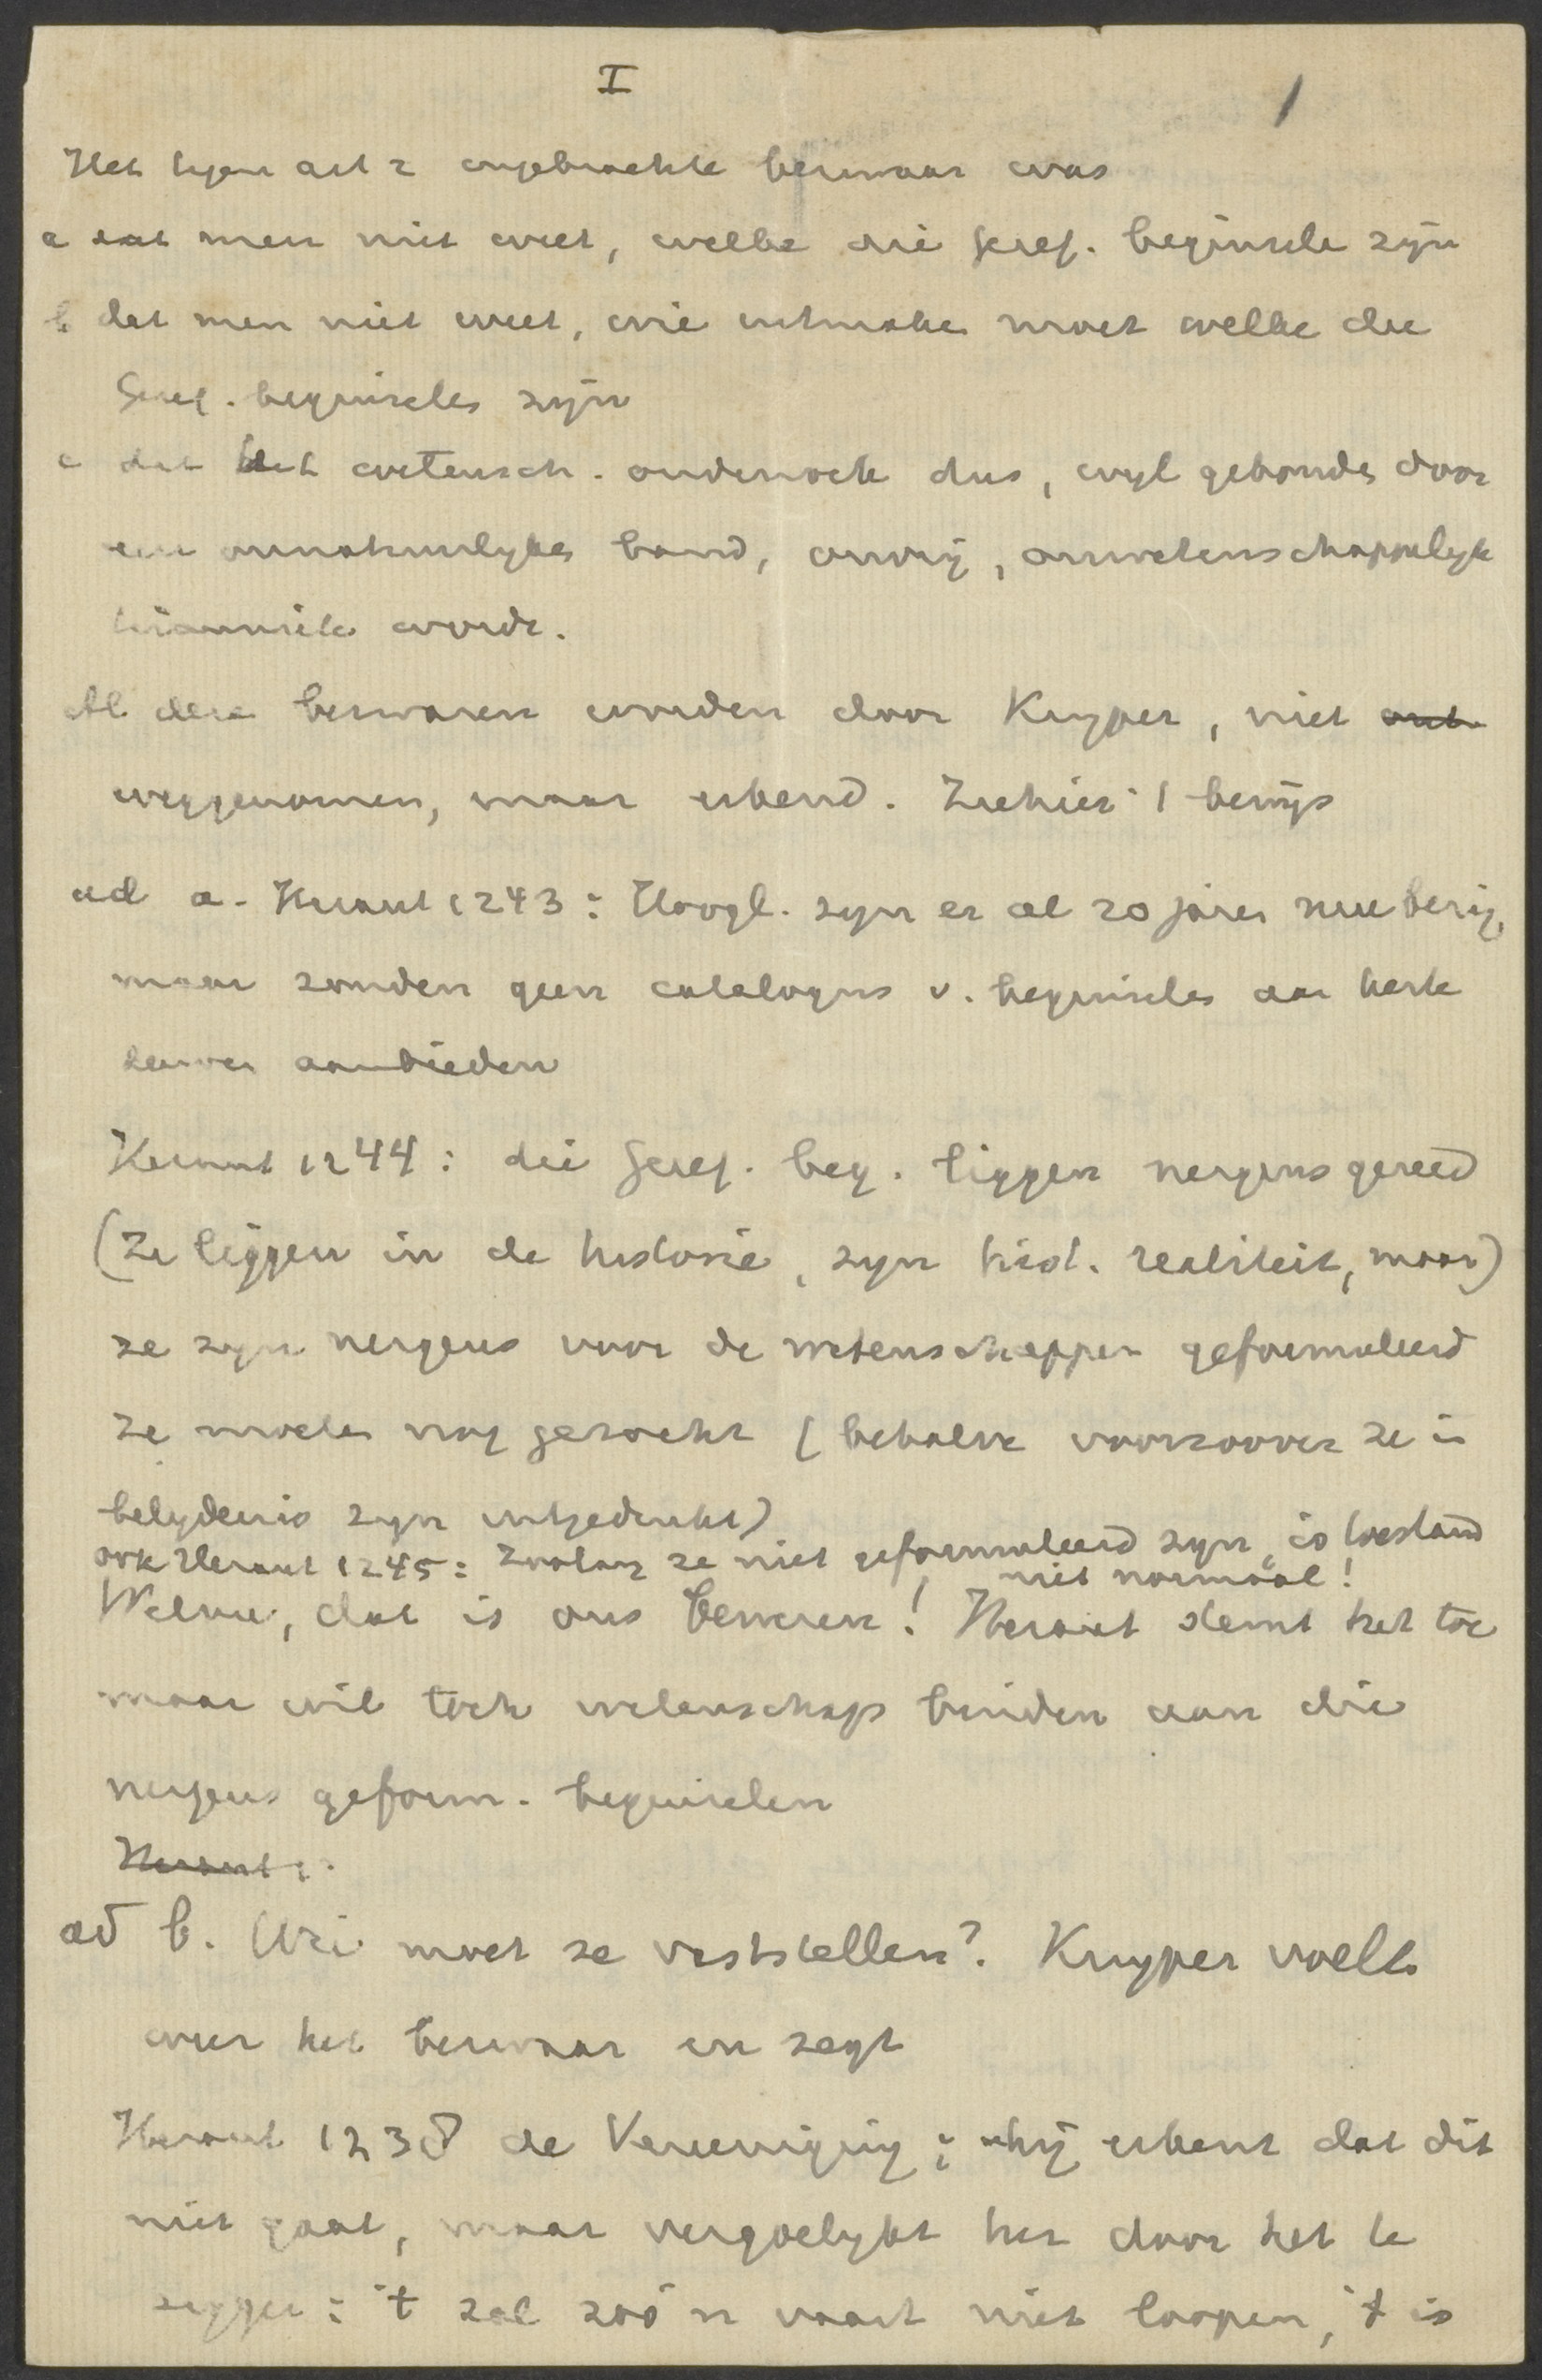 I
1
Het tegen art 2 ingebrachte bezwaar was
a dat men niet weet, welke die Geref. beginsele zijn
b dat men niet weet, wie uitmaken moet welke die
Geref. beginseles zijn
c dat het wetensch. onderzoek dus, wijl gebonden door
een onnatuurlyken band, onvrij, onwetenschappelyk
worde.
Al deze bezwaren worden door Kuyper, niet
weggenomen, maar erkend. Ziehier 't bewijs
ad a. Heraut 1243: Hoogl. zyn er al 20 jaren mee bezig,
maar zouden geen catalogus v. beginseles aan
aanbieden
Heraut 1244: die Geref. beg. liggen nergens gereed
(Ze liggen in de historie, zyn hist. realiteit, maar)
ze zyn nergens voor de wetenschappen geformuleerd
ze moeten nog gezocht (behalve voorzoover ze in
belydenis zyn uitgedrukt)
ook Heraut 1245: Zoolang ze niet geformuleerd zyn, is toestand
niet normaal!
Welnu, dat is ons beweren! Heraut stemt het toe
maar wil toch wetenschap binden aan die
nergens geform. beginselen
Heraut 1
ad b. Wie moet ze vaststellen? Kuyper voelt
weer het bezwaar en zegt
Heraut 1238 de Vereeniging; hij erkent dat dit
niet gaat, maar vergoelykt het door het te
zeggen: 't zal zoo'n vaart niet loopen, 't is